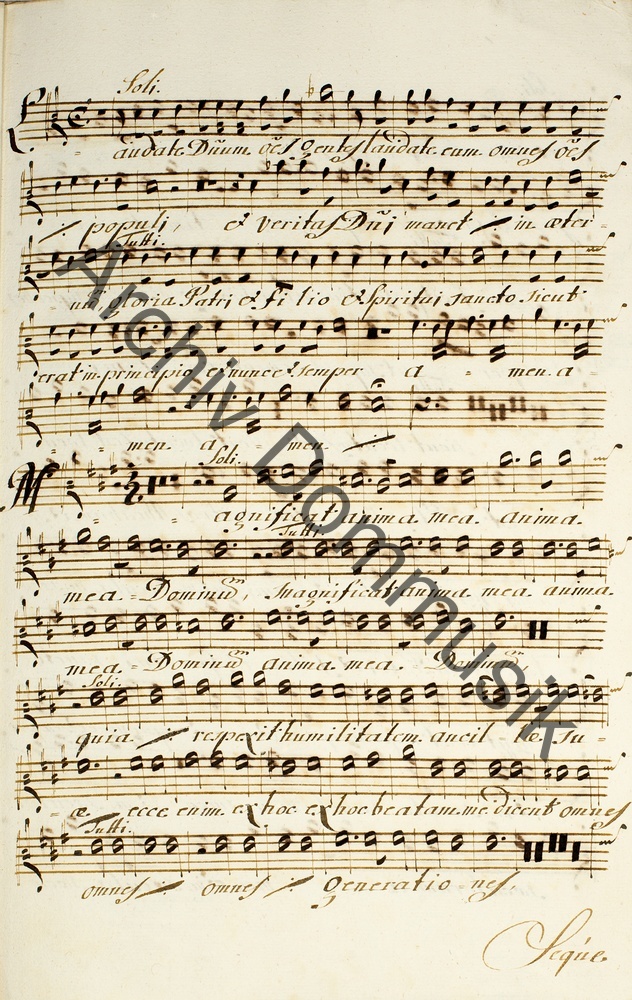 Soli.
Laudate Dñum oẽs gentes laudate eum omnes oẽs
populi, et veritas Dñi manet ⁒ in æter-
Tutti.
nũ, gloria Patri et filio et Spiritui sancto sicut
erat in principio et nunc et semper a - men. a -
- men. a - men. ⁒
Soli.
Magnificat anima mea. anima.
Tutti
mea - Dominũ, magnificat anima mea anima
mea - Dominũ anima mea - Dominũ,
Soli.
quia ⁒ respexit humilitatem ancil - læ su -
- æ ecce enim ex hoc ex hoc beatam me dicent omnes
Tutti.
omnes ⁒ omnes ⁒ generatio - nes,
Seque.
Archiv Dommusik